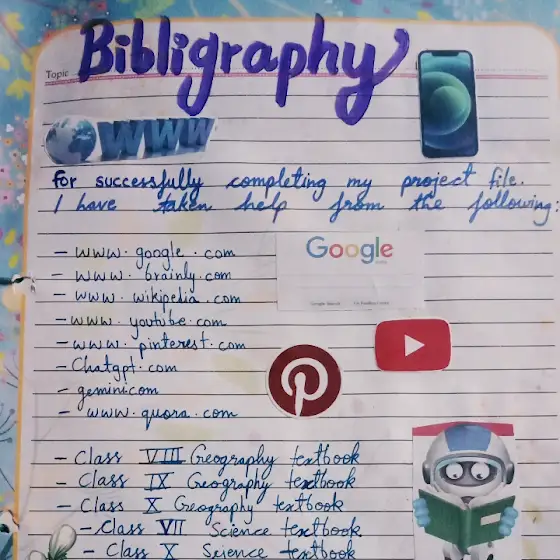 Bibligraphy
Topic
WWW
For successfully completing my project file.
I have taken help from the following:
Google
- www.google.com
- www.brainly.com
- www.wikipedia.com
- www.youtube.com
- www.pinterest.com
- Chatgpt.com
- geminicom
- www.quora.com
- Class VIII Geography textbook
- Class IX Geography textbook
- Class X Geography textbook
- Class VII Science textbook
- Class X Science textbook